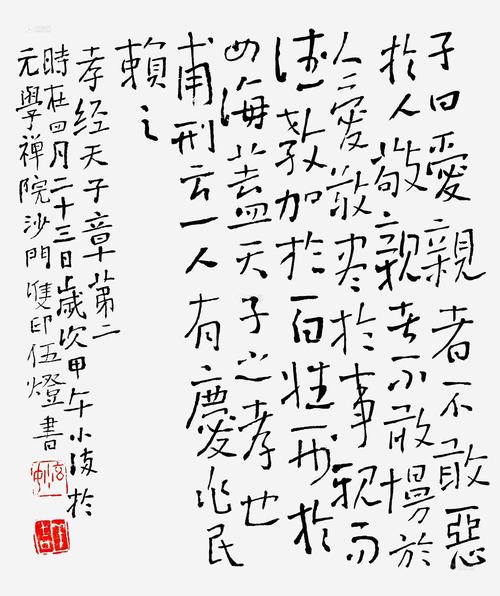 子曰愛親者不敢惡
於人敬親者不敢慢於
人愛敬尽於事親而
德教加於百姓刑於
四海蓋天子之孝也
甫刑云一人有慶兆民
賴之
孝经天子章第二
時在四月二十三日歲次甲午小满於
元學禅院沙門雙印伍燈書